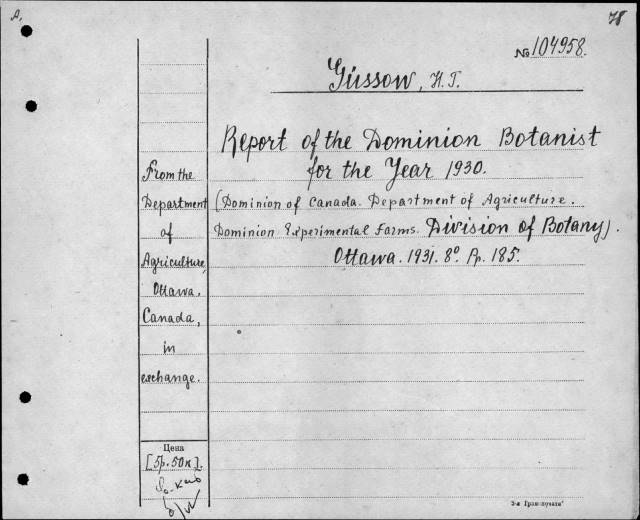 A.
78
No 104958.
Güssow, H.T.
Report of the Dominion Botanist
for the Year 1930.
(Dominion of Canada. Department of Agriculture.
Dominion Experimental Farms. Division of Botany).
Ottawa. 1931. 8°. Pp. 185.
From the
Department
of
Agriculture,
Ottawa,
Canada,
in
exchange.
Цена
[5р.50к].